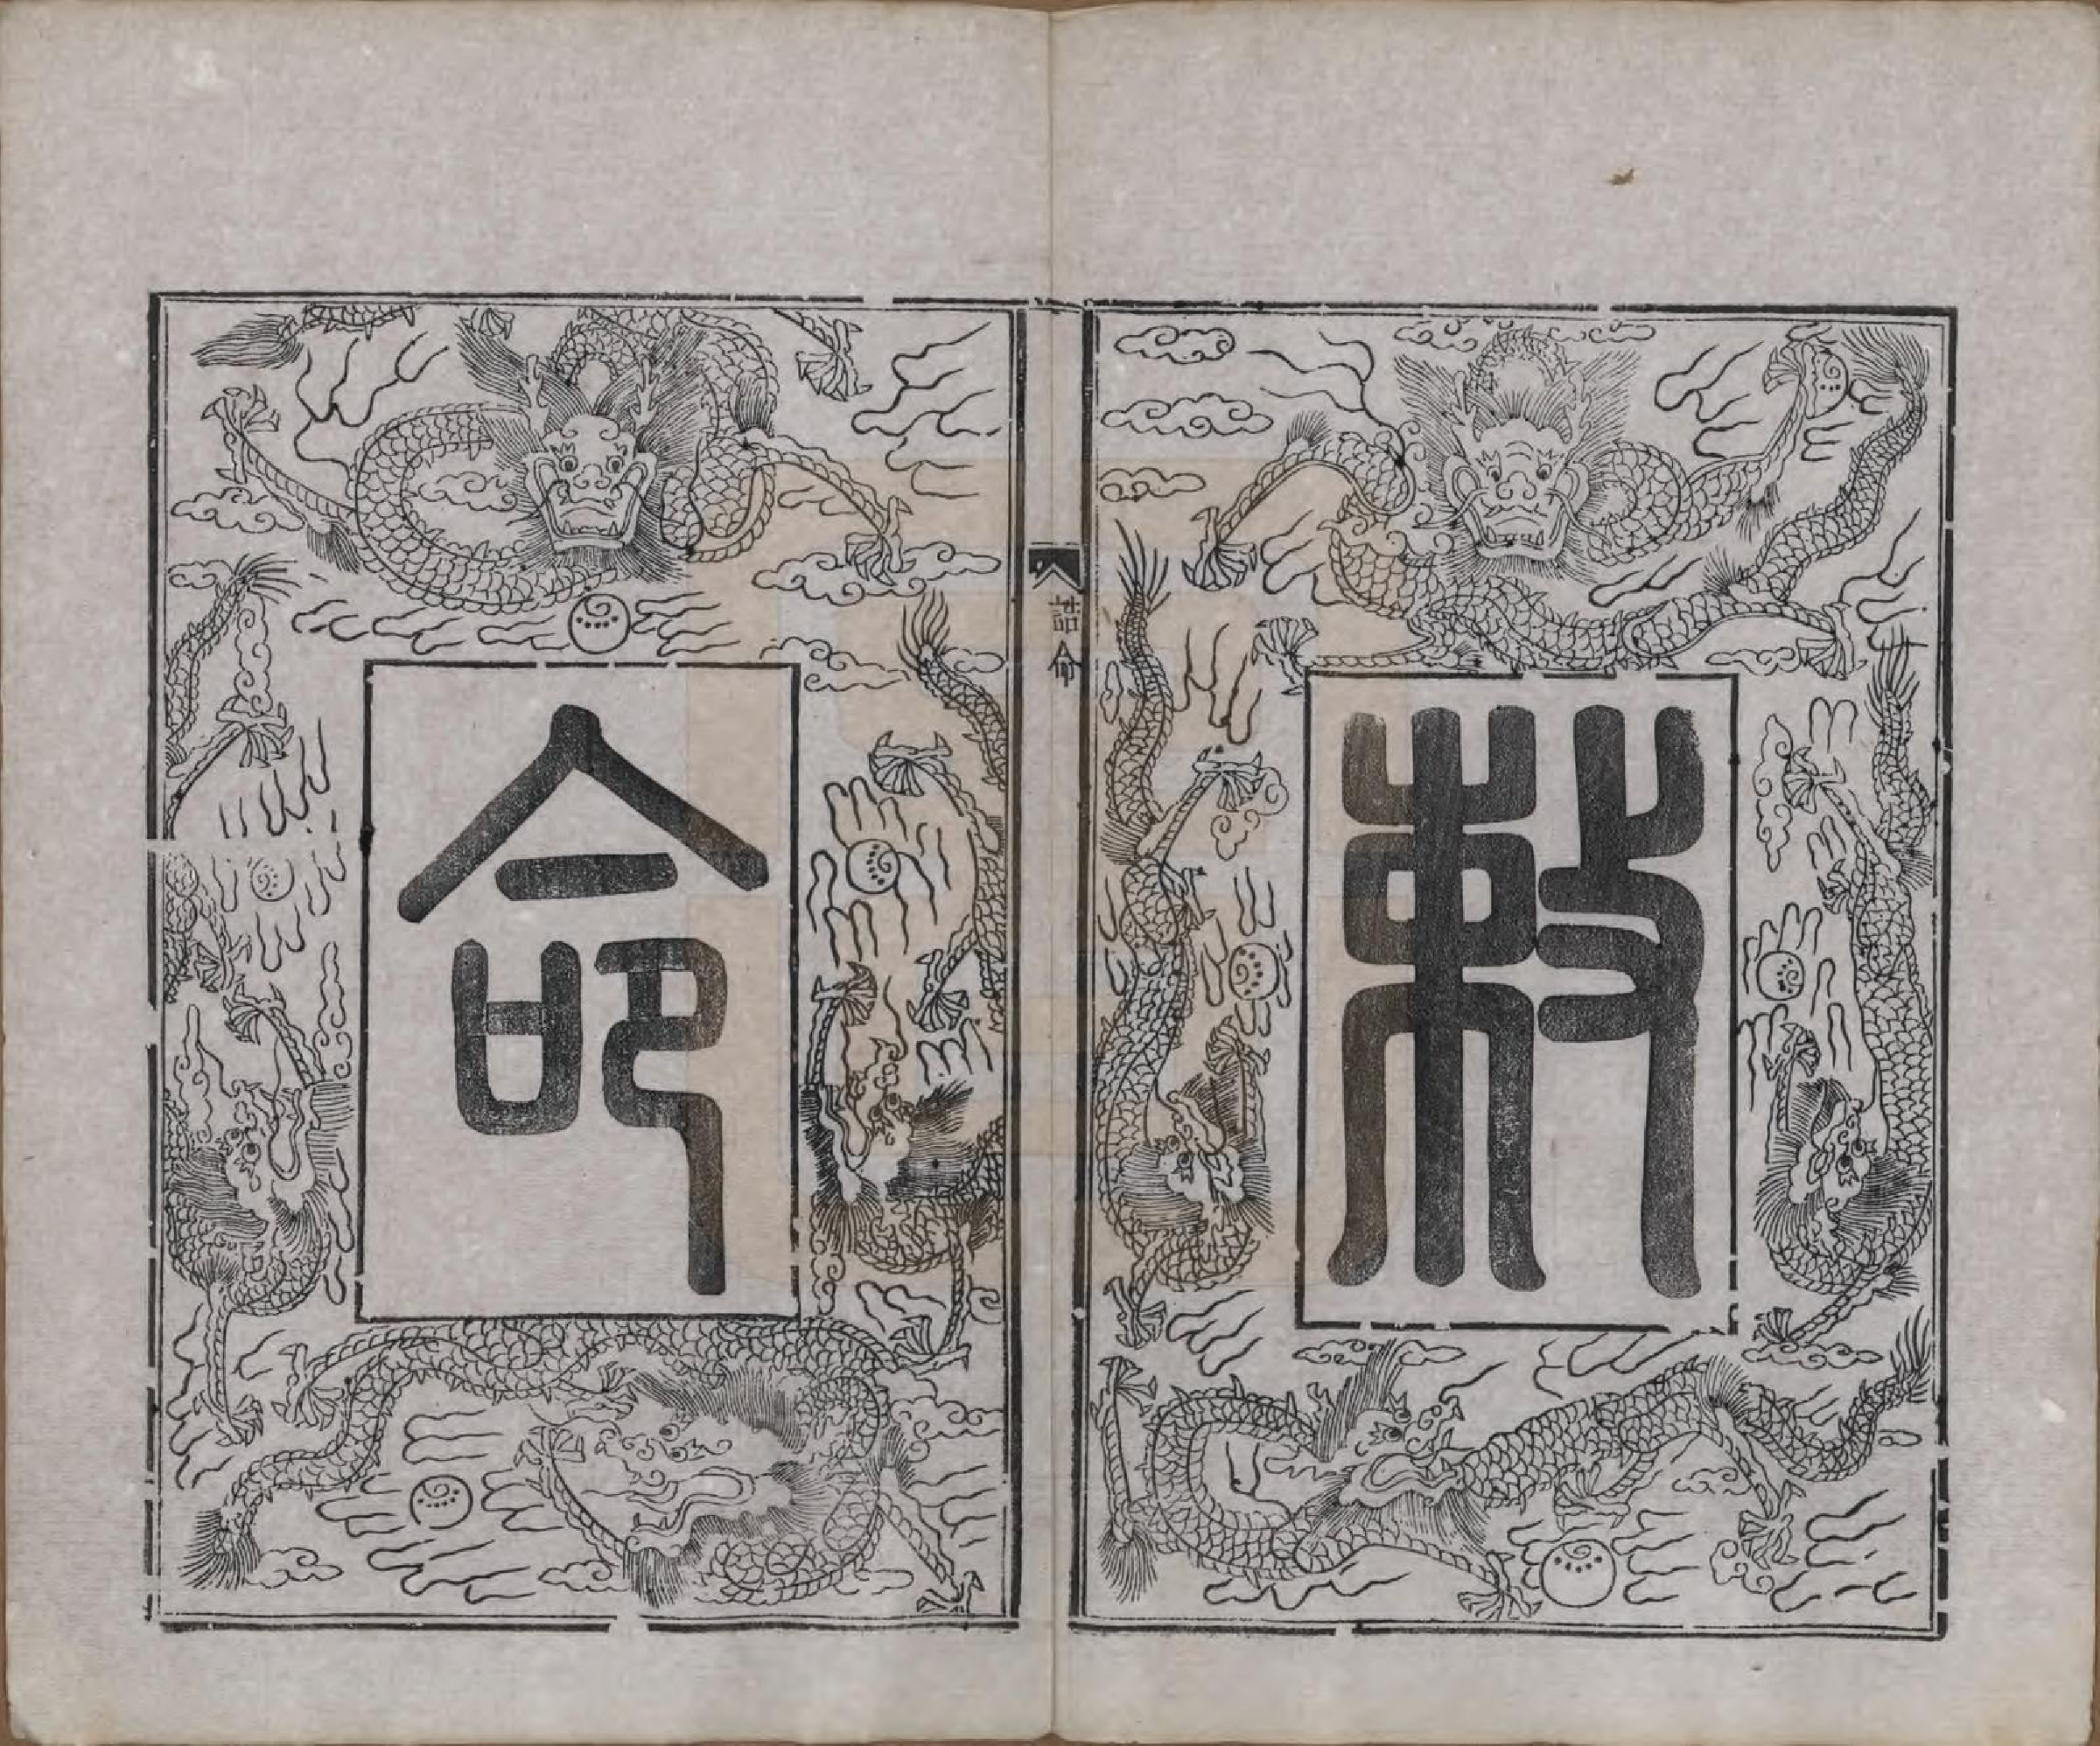 敕
誥命
命